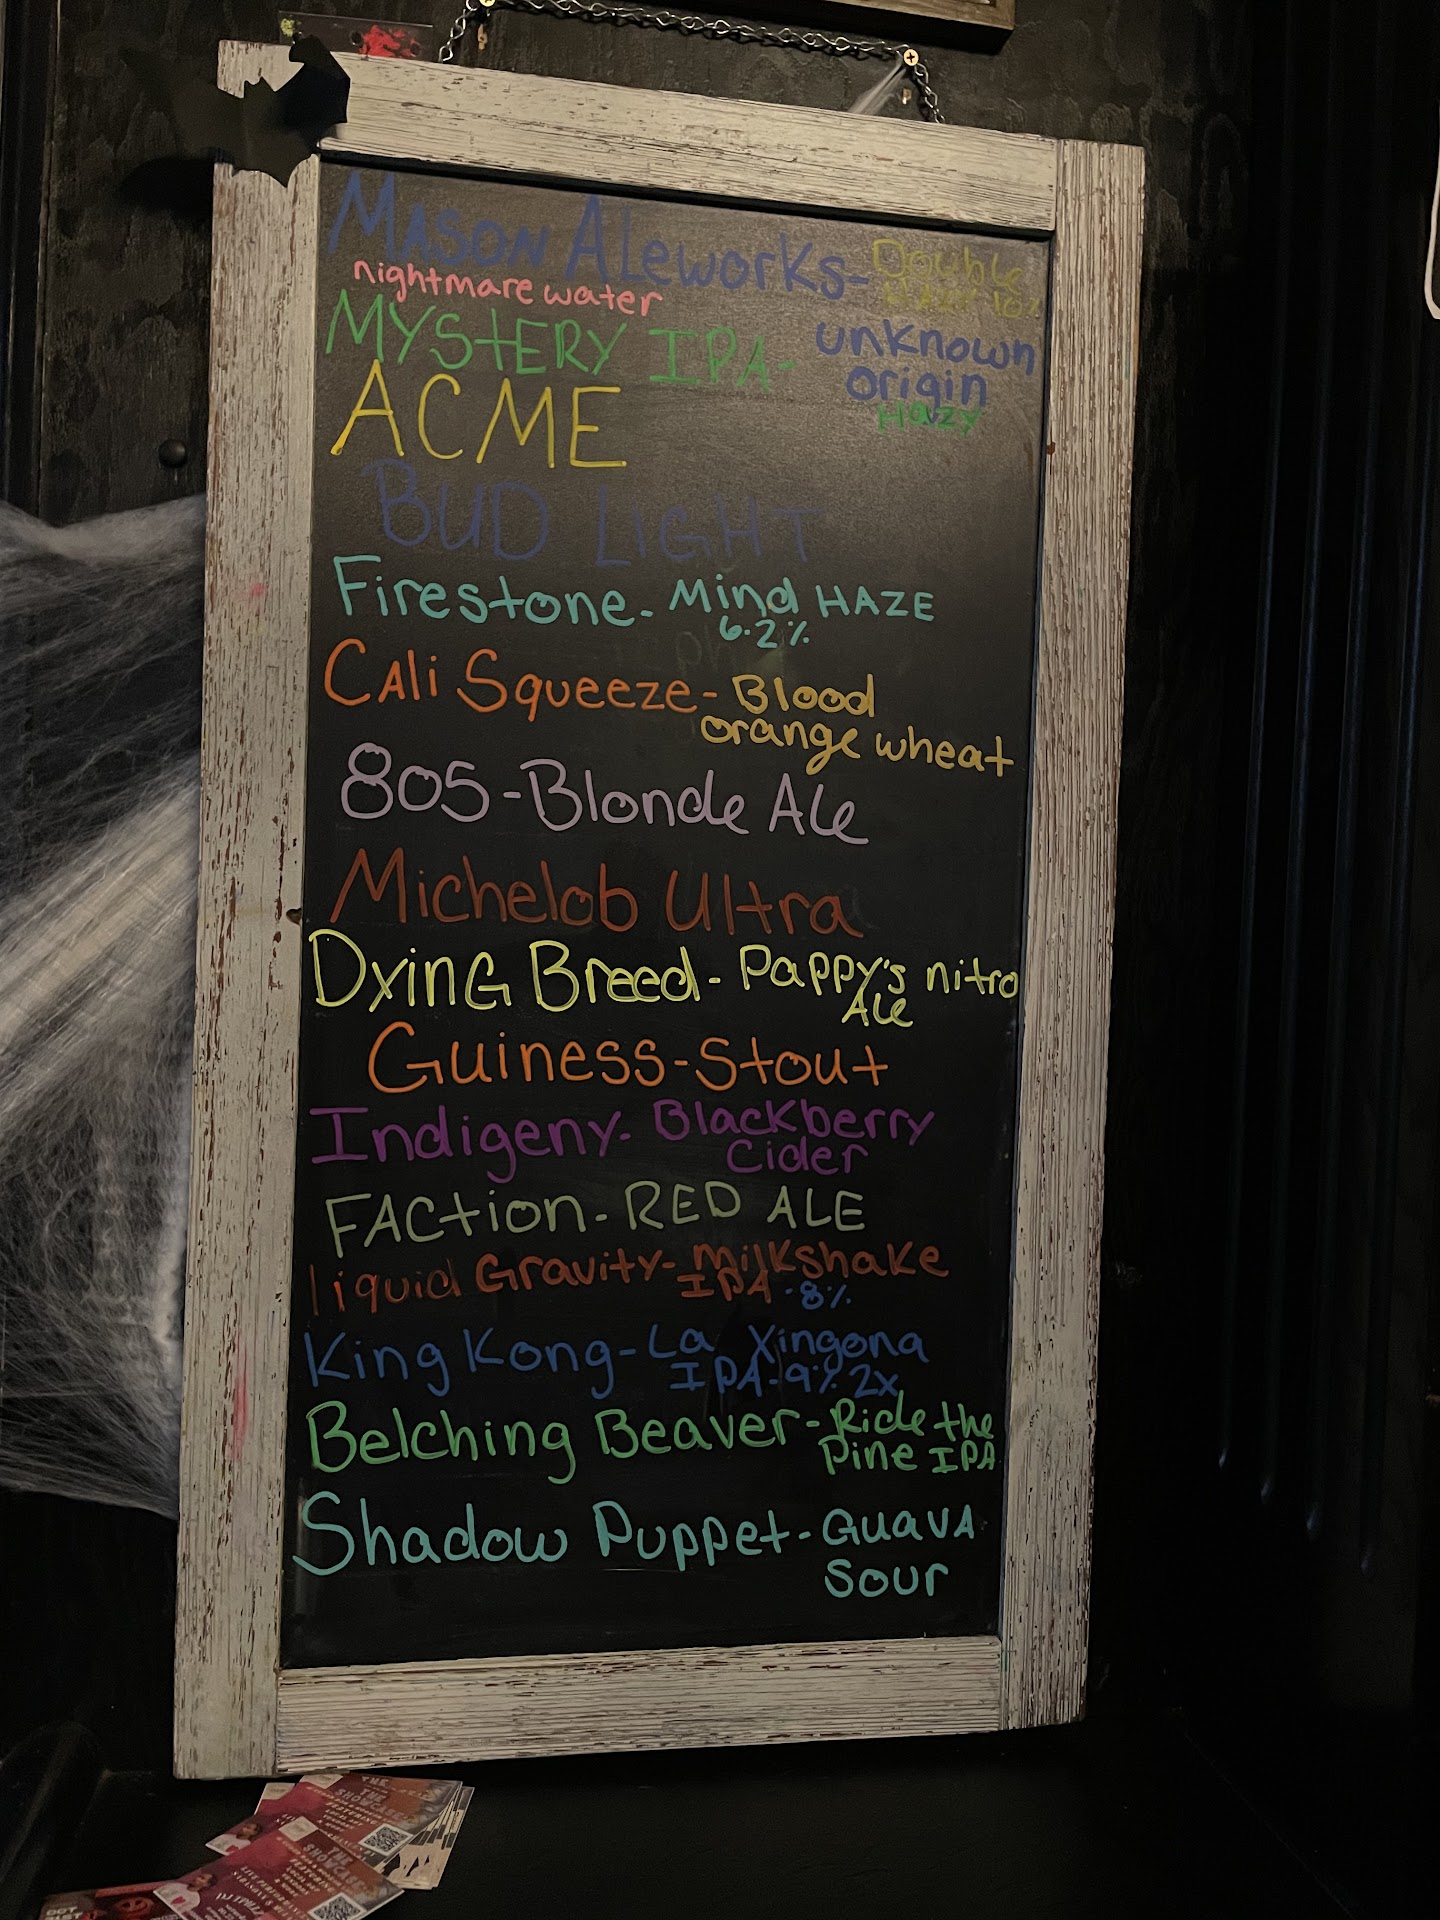 Mason Aleworks- Double
nightmare water Hazy 10%
MYStERY IPA- unknown
origin
Hazy
ACME
BUD LIGHT
Firestone- Mind HAZE
6.2%
CAli Squeeze- Blood
orange wheat
805-Blonde Ale
Michelob Ultra
DyinG Breed- Pappy's nitro
Ale
Guiness-Stout
Indigeny- Blackberry
Cider
FACtion- RED ALE
liquid Gravity- Milkshake
IPA-8%
King Kong- La Xingona
IPA-9% 2x
Belching Beaver- Ride the
Pine IPA
Shadow Puppet- GuavA
Sour
OCT